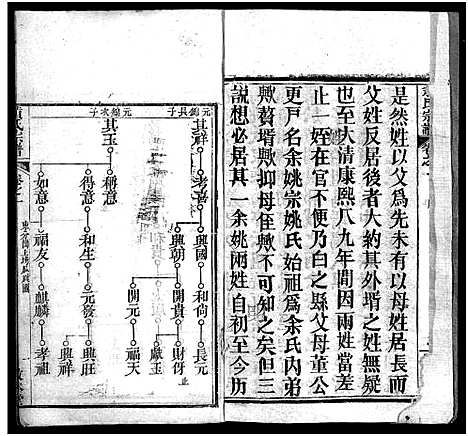 是然姓以父為先未有以母姓居長而
父姓反居後者大約其外壻之姓無疑
也至大清康熙八九年間因兩姓當差
止一姪在內不便乃白之縣父母董公
更戶名余姚宗姚氏始祖為余氏內弟
歟贅壻歟抑母侄歟不可知之矣但三
說想必居其一余姚兩姓自初至今历
元綿長子
其祥
考
興國
和尚
長元
興朝
開貴
財伢
獻玉
開元
福天
元綿次子
其玉
稱意
得意
和生
元發
興旺
興祥
如意
福友
麒麟
孝祖